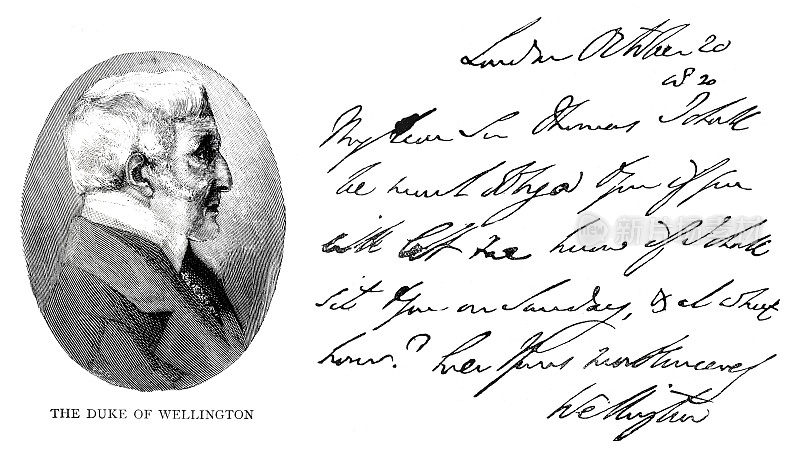 London October 20
1820
My dear Sir Thomas I shall
be much obliged to you if you
will let me know if I shall
sit to you on Sunday, & at what
hour? Ever Yours most sincerely
Wellington
THE DUKE OF WELLINGTON
iStock
Credit: duncan1890